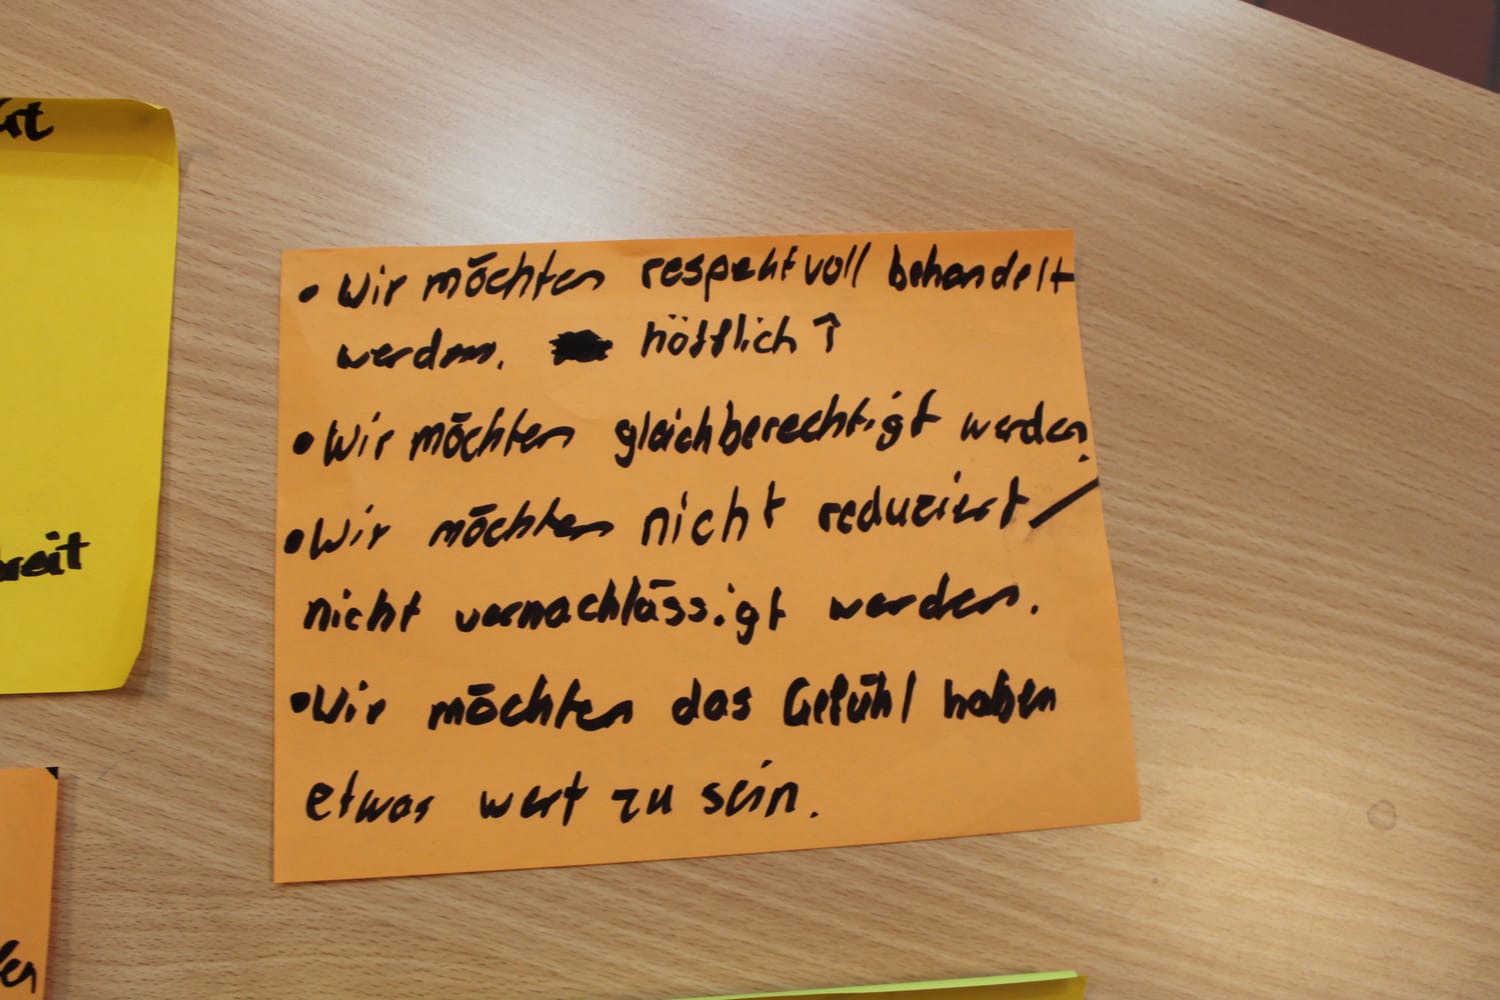 • Wir möchten respektvoll behandelt
werden. höfflich ↑
• Wir möchten gleichberechtigt werden.
• Wir möchten nicht reduziert /
nicht vernachlässigt werden.
• Wir möchten das Gefühl haben
etwas wert zu sein.
breit